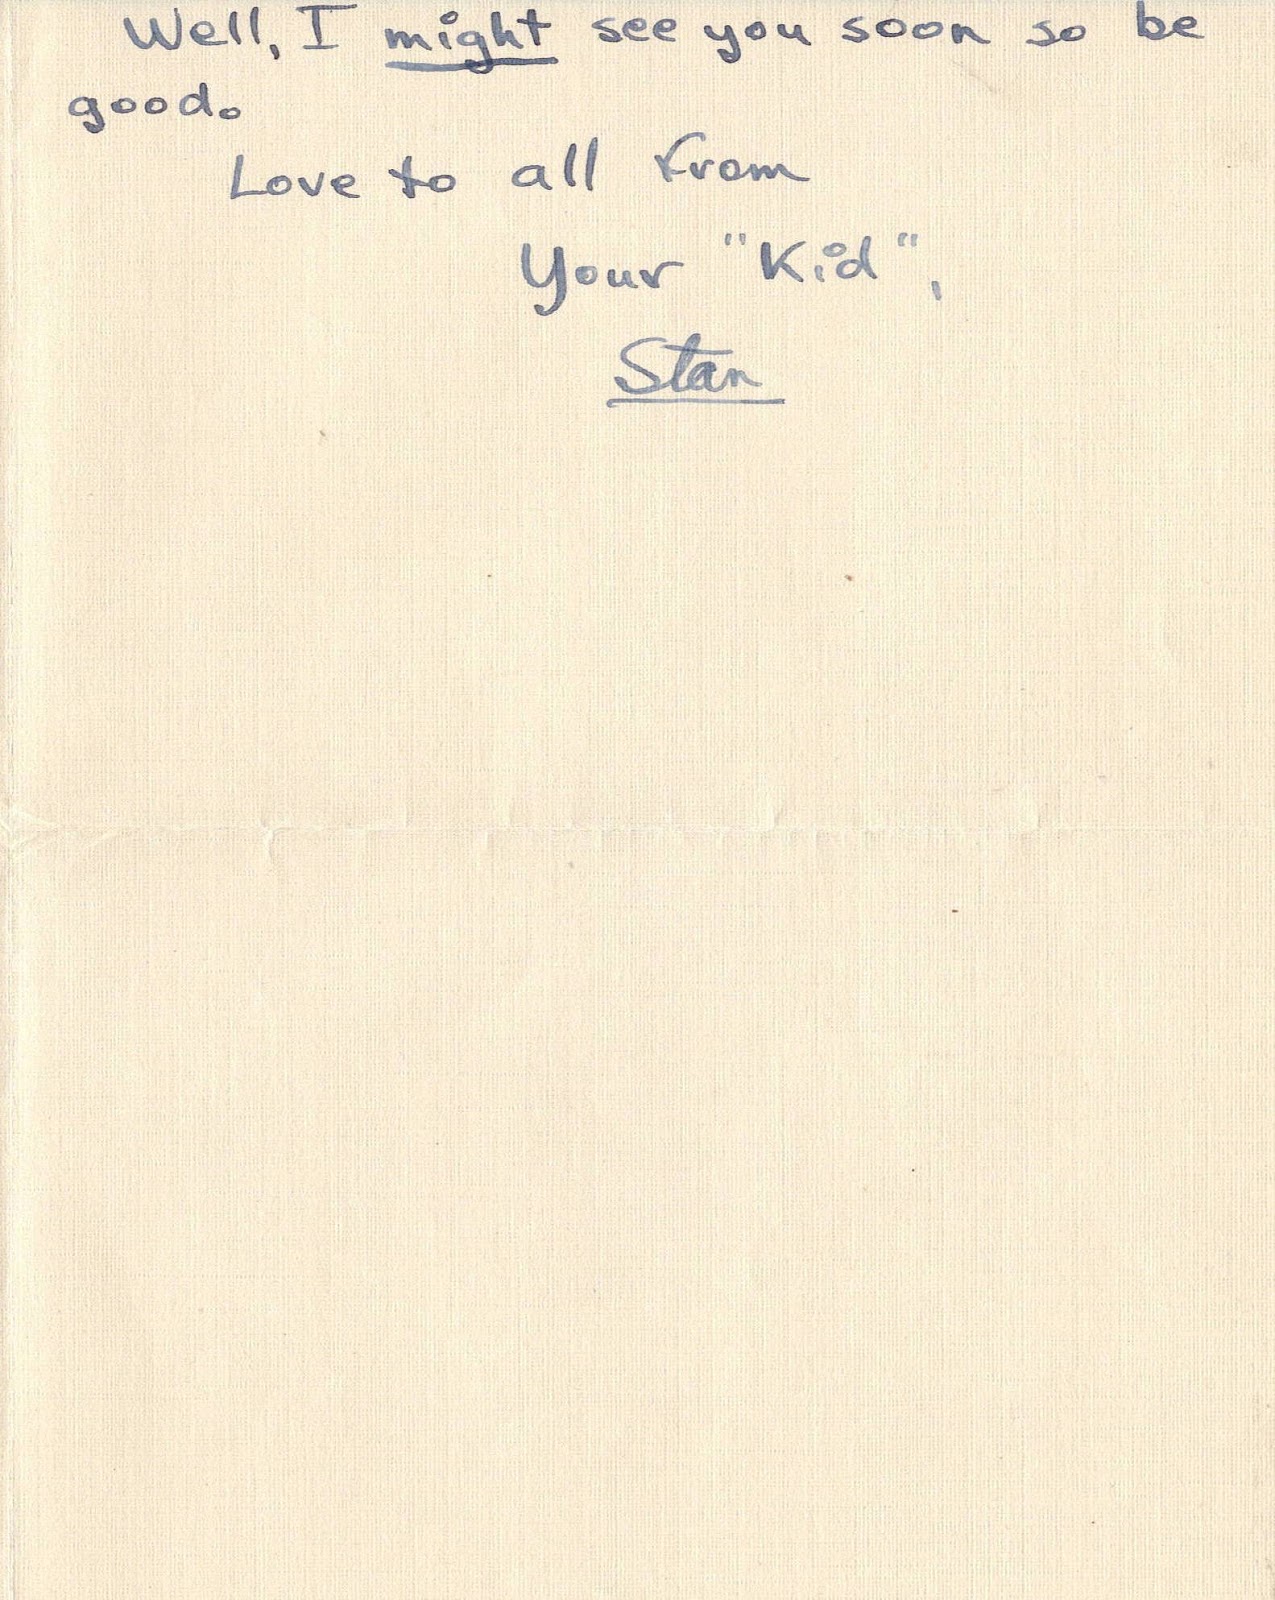 Well, I might see you soon so be
good.
Love to all from
Your "Kid",
Stan